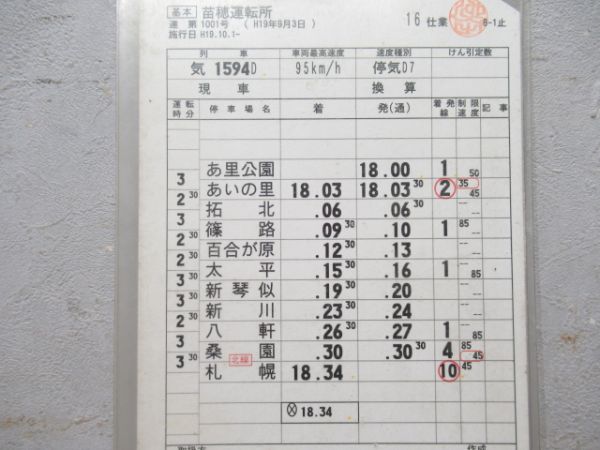 基本 苗穂運転所
運 第 1001号 ( H19年9月3日 ) 16 仕業 6-1止
施行日 H19.10.1-
列車 車両最高速度 速度種別 けん引定数
気 1594D 95km/h 停気D7
現車 換算
運転時分 停車場名 着 発(通) 着発線 制限速度 記事
あ里公園 18.00 1 50
3
あいの里 18.03 18.03 30 2 35 45
2 30
拓北 .06 .06 30
2 30
篠路 .09 30 .10 1 85
2 30
百合が原 .12 30 .13
2 30
太平 .15 30 .16 1 85
3 30
新琴似 .19 30 .20
3 30
新川 .23 30 .24
2 30
八軒 .26 30 .27 1 85
3
桑園 北線 .30 .30 30 4 85 45
3 30
札幌 18.34 10 45
18.34
作成